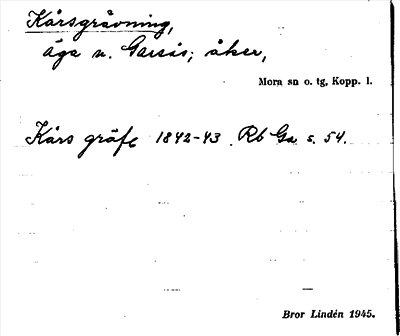 Kårsgrävning,
äga n. Garsås; åker,
Mora sn o. tg, Kopp. l.
Kårs gräf 1842-43. Rb Ga s. 54.
Bror Lindén 1945.